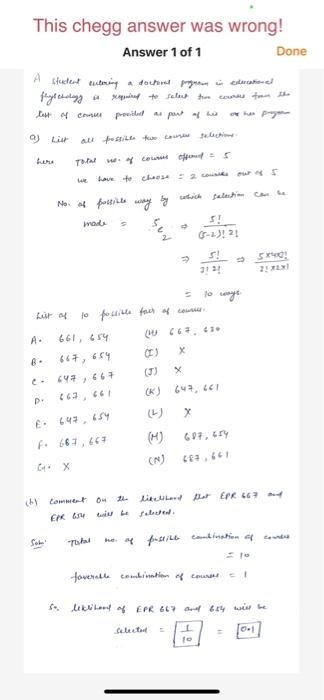 This chegg answer was wrong!
Answer 1 of 1
Done
A student entering a doctoral program in educational
psychology is required to select two courses from the
list of courses provided as part of his or her program
a) List all possible two course selections.
here Total no. of courses offered = 5
we have to choose = 2 courses out of 5
No. of possible way by which selection can be
made = 5c2 ⇒ 5! / (5-2)! 2!
⇒ 5! / 3! 2! ⇒ 5x4x3! / 3! x2x1
= 10 ways.
List of 10 possible pair of courses.
A. 661, 654 (H) 667, 630
B. 667, 654 (I) X
C. 647, 667 (J) X
D. 667, 661 (K) 647, 661
E. 647, 654 (L) X
F. 687, 667 (M) 687, 654
G. X (N) 687, 661
(b) Comment on the likelihood that EPR 667 and
EPR 654 will be selected.
Soln. Total no. of possible combination of courses
= 10
favorable combination of courses = 1
So, likelihood of EPR 667 and 654 will be
selected = 1/10 = 0.1